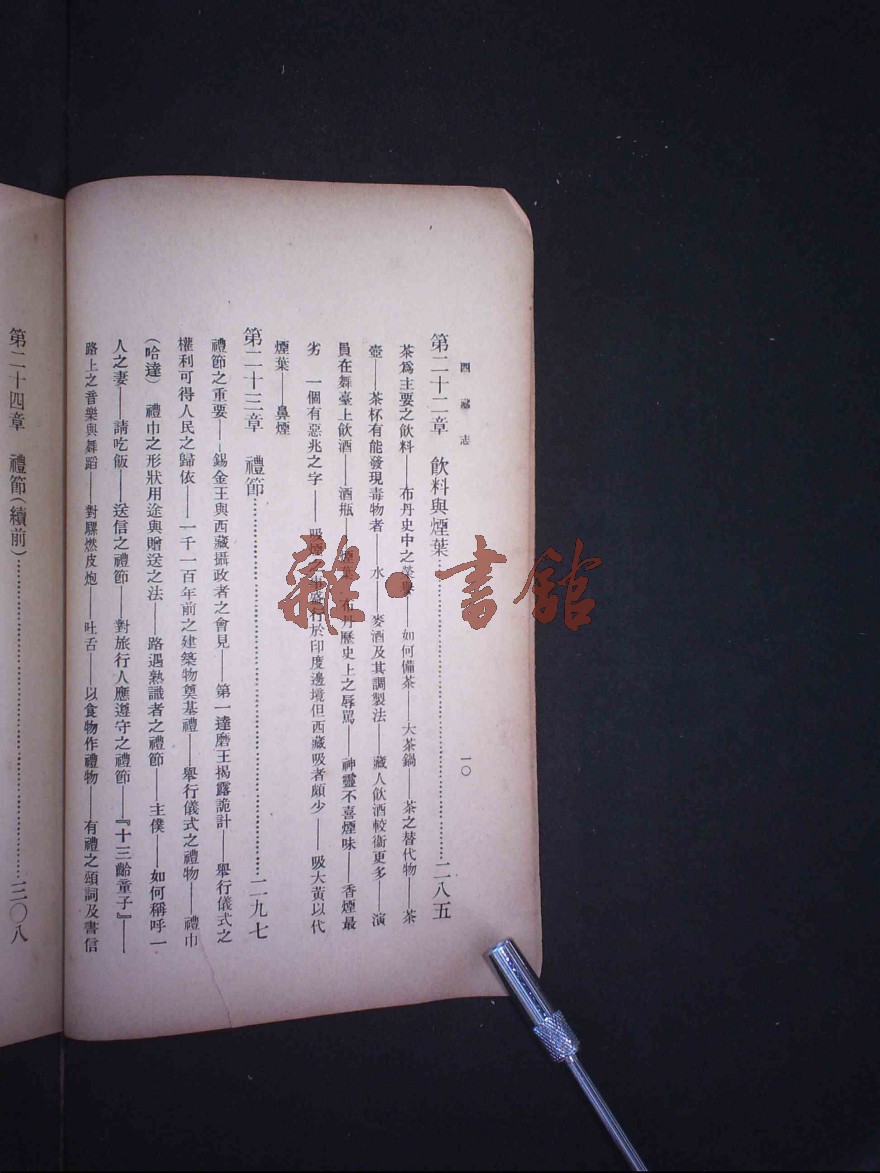 西藏志
一〇
第二十二章　飲料與煙葉……二八五
茶爲主要之飲料——布丹史中之——如何備茶——大茶鍋——茶之替代物——茶
壺——茶杯有能發現毒物者——水——麥酒及其調製法——藏人飲酒較衞更多——演
員在舞臺上飲酒——酒瓶——布丹歷史上之辱罵——神靈不喜煙味——香煙最
劣　一個有惡兆之字——吸煙之事盛行於印度邊境但西藏吸者頗少——吸大黃以代
煙葉——鼻煙
第二十三章　禮節……二九七
禮節之重要——錫金王與西藏攝政者之會見——第一達磨王揭露詭計——舉行儀式之
權利可得人民之歸依——一千一百年前之建築物奠基禮——舉行儀式之禮物——禮巾
(哈達)　禮巾之形狀用途與贈送之法——路遇熟識者之禮節——主僕——如何稱呼一
人之妻——請吃飯——送信之禮節——對旅行人應遵守之禮節——『十三齡童子』——
路上之音樂與舞蹈——對騾燃皮炮——吐舌——以食物作禮物　有禮之頌詞及書信
第二十四章　禮節(續前)……三〇八
雜·書館